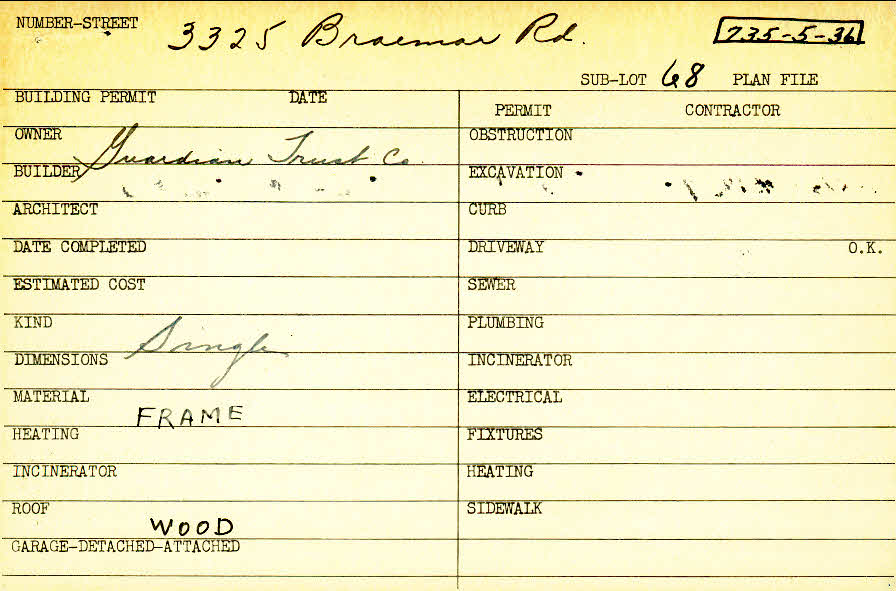 NUMBER-STREET 3325 Braemar Rd. 735-5-36
SUB-LOT 68 PLAN FILE
BUILDING PERMIT DATE
PERMIT CONTRACTOR
OWNER Guardian Trust Co.
OBSTRUCTION
BUILDER
EXCAVATION
ARCHITECT
CURB
DATE COMPLETED
DRIVEWAY O.K.
ESTIMATED COST
SEWER
KIND Single
PLUMBING
DIMENSIONS
INCINERATOR
MATERIAL FRAME
ELECTRICAL
HEATING
FIXTURES
INCINERATOR
HEATING
ROOF WOOD
SIDEWALK
GARAGE-DETACHED-ATTACHED